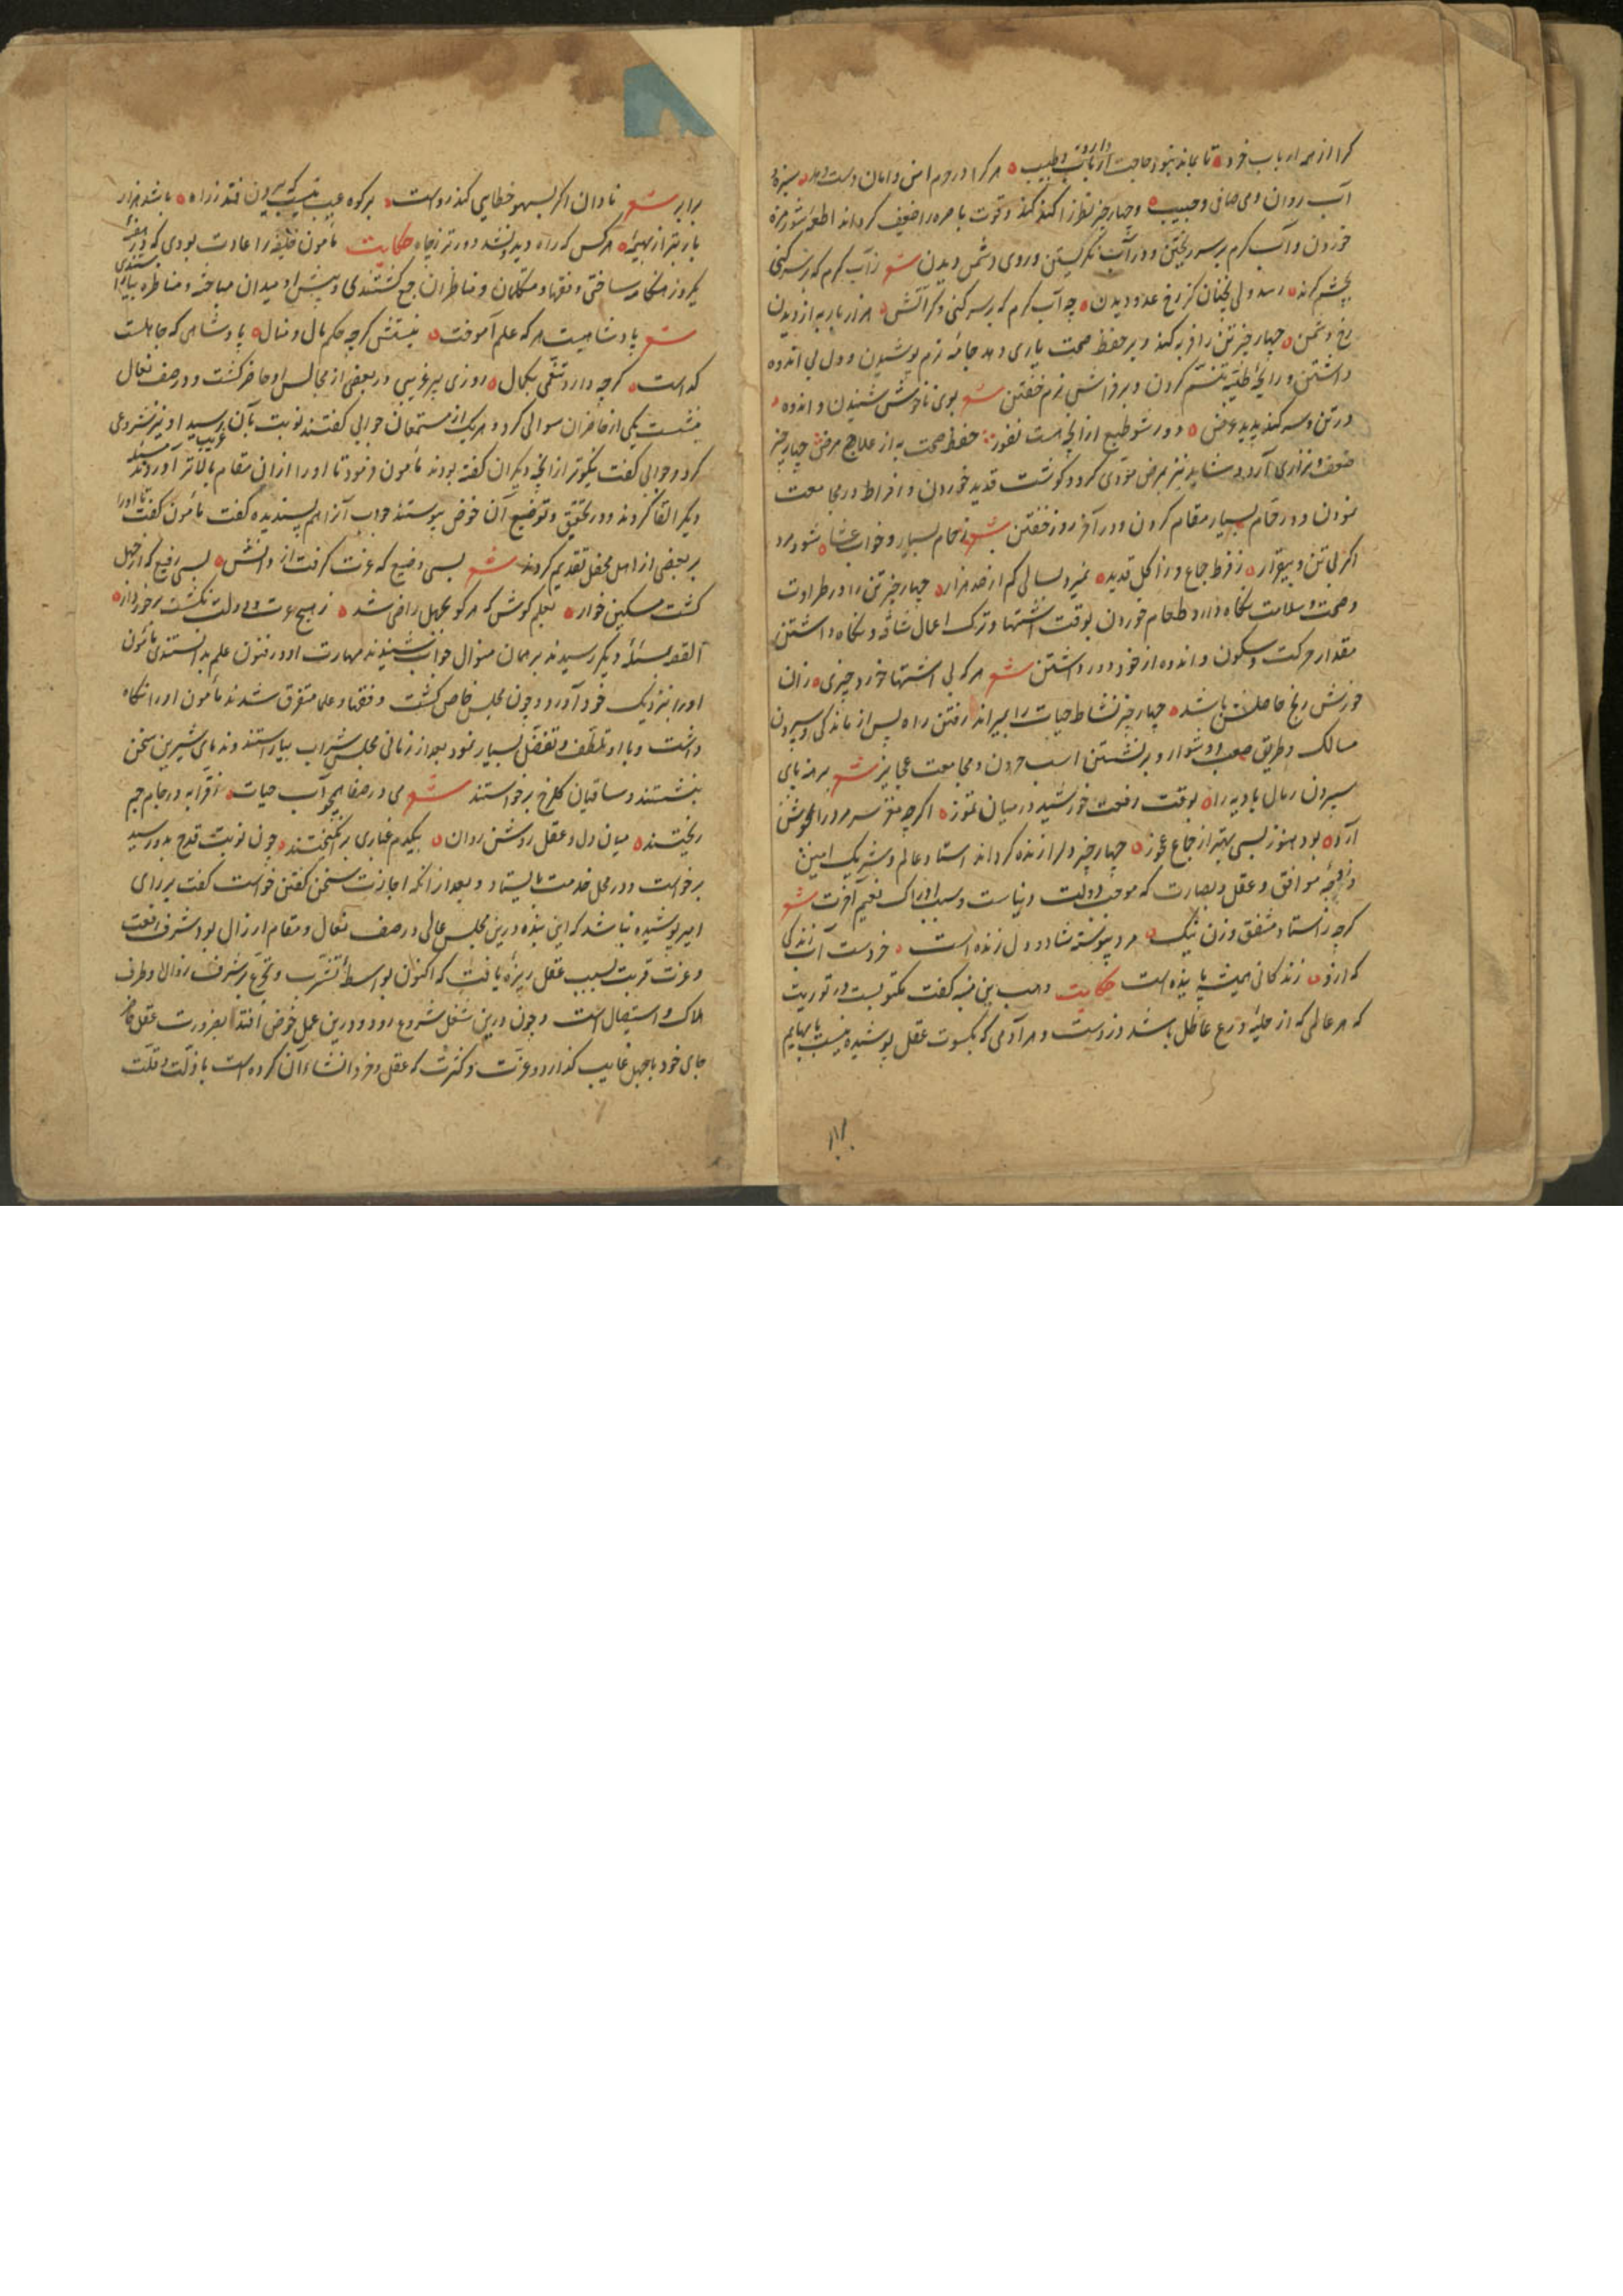 کرا از هر ارباب خرد تا بماند نبود حاجت ارباب طبیب هر کرا در حرم امن و امان دست دهد سبزه و
دارو
آب روان و می صافی و حبیب و چهار چیز نظر را کند کند و قوت باصره را ضعیف کرداند اطعمه شور مزه
خوردن و آب کرم بر سر ریختن و در آفتاب نکریستن و روی دشمن دیدن شعر ز آب کرم که بر سر کنی
بچشم کزند رسد ولی نچنان کز رخ عدو دیدن چه آب کرم که بر سر کنی و کر آتش هزار بار به از دیدن
رخ دشمن چهار چیز تن را فربه کند و بر حفظ صحت یاری دهد جامه نرم پوشیدن و دل بی اندوه
داشتن و رایحه طیبه تنسم کردن و بر فراش نرم خفتن شعر بوی ناخوش شنیدن و اندوه
در تن و سر کند پدید عرض دور شو طبع از آنچه هست نفور حفظ صحت به از علاج مرض چهار چیز
ضعف و نزاری آرد و شاید نیز بمرض مؤدی کردد کوشت قدید خوردن و افراط در مجامعت
نمودن و در حمام بسیار مقام کردن و در آخر روز خفتن شعر ز حمام بسیار و خواب عشا شود مرد
اکر بی تن و بیقرار ز فرط جماع و ز اکل قدید نمیرد بسالی کم از صد هزار چهار چیز تن را در طراوت
و صحت و سلامت نکاه دارد طعام خوردن بوقت اشتها و ترک اعمال شاقه و نکاه داشتن
مقدار حرکت و سکون و اندوه از خود دور داشتن شعر هر که بی اشتها خورد چیزی زان
خورش رنج حاصلش باشد چهار چیز نشاط حیات را بمیراند رفتن راه پس از ماندکی و سپردن
مسالک و طریق صعب و دشوار و بر نشستن اسب حرون و مجامعت عجایز شعر برهنه پای
سپردن رمال بادیه را بوقت رفعت خورشید در میان تموز اکرچه مغز سر مرد را بجوش
آرد بود هنوز بسی بهتر از جماع عجوز چهار چیز دل را زنده کرداند استاد عالم و شریک امین
و زوجه موافق و عقل و بصارت که موجب دولت دنیاست و سبب ادراک نعیم آخرت شعر
کرچه ز استاد مشفق و زن نیک مرد پیوسته شاد و دل زنده است خرد است آب زندکی
که ازو زندکانی همیشه پاینده است حکایت وهب بن منبه کفت مکتوبست در توریت
که هر عالمی که از حلیه ورع عاطل باشد دزدست و هر آدمی که بکسوت عقل پوشیده نیست با بهایم
برابر
برابر شعر نادان اکر بسهو خطایی کند رواست بر کوه عیب نیست که بیرون فتد ز راه باشد هزار
بار بتر از بهیمه هر کس که راه دید و نشد دور تر ز چاه حکایت مأمون خلیفه را عادت بودی که در هفته
یکروز هنکامه ساختی و فقها و متکلمان و مناظران جمع کشتندی و پیش او میدان مباحثه و مناظره بیاراستندی
شعر پادشاهیست هر که علم آموخت نیستش کرچه حکم مال و منال پادشاهی که جاهلست
کداست کرچه دارد تنعمی بکمال روزی پیر غریبی در بعضی از مجالس او حاضر کشت و در صف نعال
بنشست یکی از حاضران سوالی کرد و هر یک از مستمعان جوابی کفتند نوبت بآن غریب رسید او نیز شروعی
کرد و جوابی کفت نیکوتر از آنچه دیکران کفته بودند مأمون فرمود تا او را از آن مقام بالاتر آوردند مسئله
دیکر القا کردند و در تحقیق و توضیح آن خوض پیوستند جواب آنرا هم پسندیده کفت مأمون کفت تا او را
بر بعضی از اهل محفل تقدیم کردند شعر بسی وضیع که عزت کرفت از دانش بسی رفیع که از جهل
کشت مسکین خوار بعلم کوش که هر کو بجهل راضی شد ز هیچ عزت و دولت نکشت برخوردار
القصه بمسئله دیکر رسیدند بر همان منوال جواب شنیدند مهارت او در فنون علم بدانستند مأمون
او را بنزدیک خود آورد و چون مجلس خاص کشت و فقها و علما متفرق شدند مأمون او را نکاه
داشت و با او تلطف و تفضل بسیار نمود بعد از زمانی مجلس شراب بیاراستند و ندمای شیرین سخن
بنشستند و ساقیان کلرخ برخواستند شعر می در صفا همچو آب حیات ز قرابه در جام جم
ریختند میان دل و عقل روشن روان بیکدم غباری برانکیختند چون نوبت قدح بدو رسید
برخواست و در محل خدمت بایستاد و بعد از آنکه اجازت سخن کفتن خواست کفت بر رای
امیر پوشیده نباشد که این بنده درین مجلس عالی در صف نعال و مقام ارزال بود شرف رفعت
و عزت قربت بسبب عقل ریزه یافت که اکنون بواسطه تشرب و تجرع بر شرف زوال و طرف
هلاک و استیصال است و چون درین شغل شروع رود و درین عمل خوض افتد بضرورت عقل
جای خود با جهل غایب کذارد و عزت و کثرت که عقل و خرد انشاء آن کرده است با ذلت و قلت